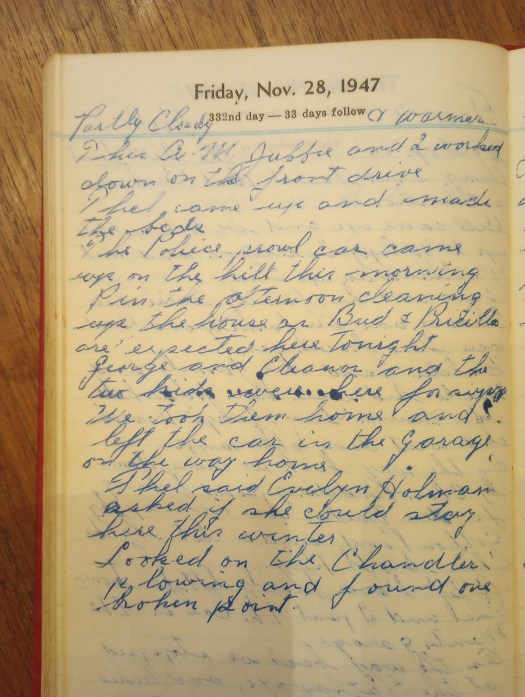 Friday, Nov. 28, 1947
332nd day — 33 days follow
Partly Cloudy & warmer
This A M Jubbie and I worked
down on the front drive
Thel came up and made
the beds
The Police prowl car came
up on the hill this morning
P in the afternoon cleaning
up the house as Bud & Pricilla
are expected here tonight
George and Eleanor and the
two kids were here for supp
We took them home and
left the car in the Garage
on the way home
Thel said Evelyn Holman
asked if she could stay
here this winter
Looked on the Chandler
and found one
broken point.